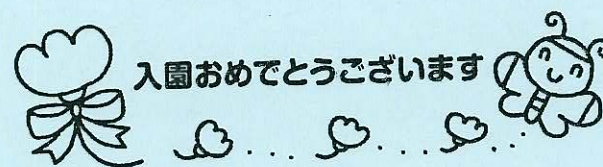 入園おめでとうございます